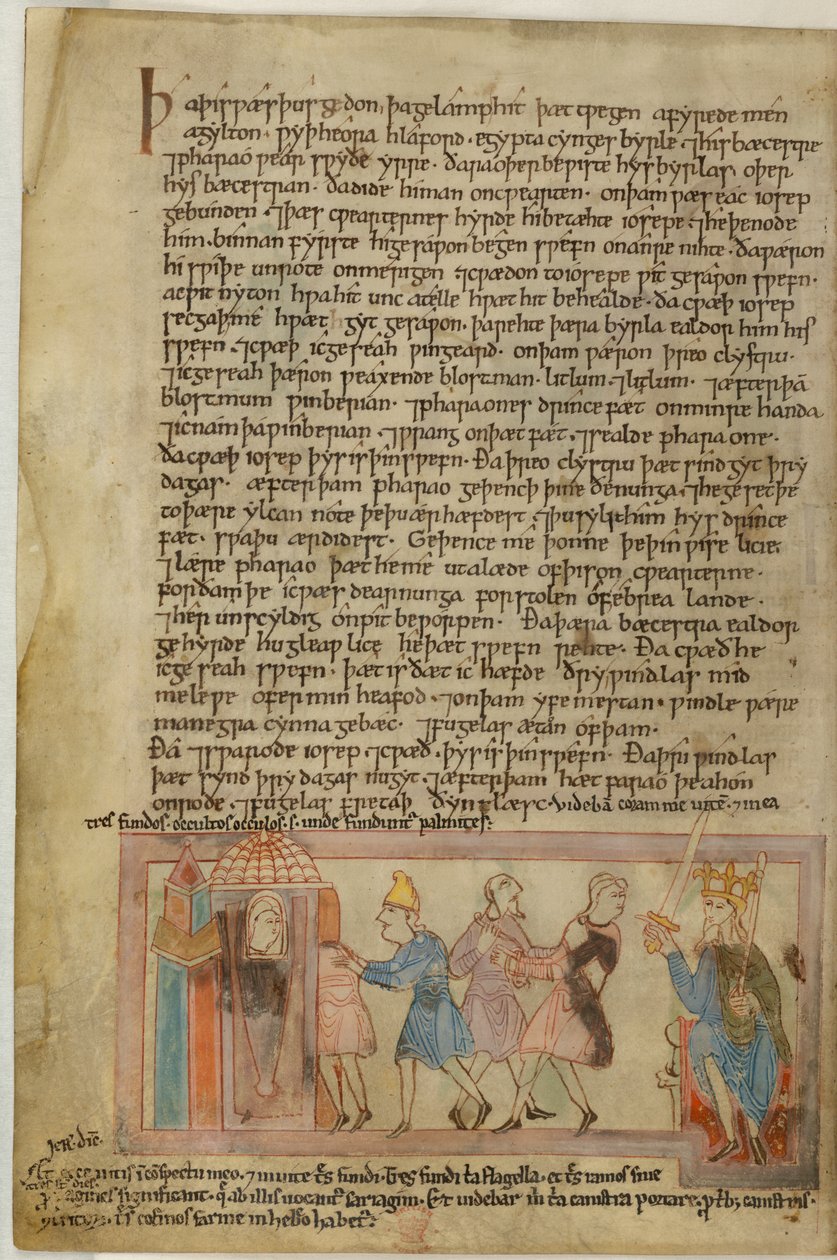 Þa þis wæs þus gedon, þa gelamp hit þæt twegen afyrede men
agylton wyþ heora hlaford egypta cynges byrle ⁊ his bæcestre
⁊ pharao wearþ swyðe yrre. ðara oþer bewiste hys byrlas, oþer
hys bæcestran. ða dide hi man on cwearten. on þam wæs eac iosep
gebunden. ⁊ þæs cwearternes hyrde hi betæhte iosepe. ⁊ he þenode
him. binnan fyrste hi gesawon begen swefn on anre nihte. ða wæron
hi swiþe unrote on merigen ⁊ cwædon to iosepe wit gesawon swefn.
ac wit nyton hwa hit unc atelle hwæt hit behealde. ða cwæþ iosep
secgaþ me hwæt gyt gesawon. þa rehte þæra byrla ealdor him his
swefn. ⁊ cwæþ ic geseah wingeard. on þam wæron þreo clystru.
⁊ ic geseah þær on weaxende blostman. litlum ⁊ litlum. ⁊ æfter þā
blostmum winberian. ⁊ pharaones drincefæt on minre handa
⁊ ic nam þa winberian. ⁊ wrang on þæt fæt. ⁊ sealde pharaone.
ða cwæþ iosep þys is þin swefn. Ða þreo clystru þæt sind gyt þry
dagas. æfter þam pharao geþencþ þine ðenunga. ⁊ he geset þe
to þære ylcan note þe þu ær hæfdest. ⁊ þu sylst him hys drince
fæt. swa þu ær didest. Geþence me þonne þe þin wise licie.
⁊ lære pharao þæt he me ut alæde of þison cwearterne.
forðam þe ic wæs dearnunga forstolen of ebrea lande.
⁊ her unscyldig on pit beworpen. Ða þæra bæcestra ealdor
gehyrde hu gleaplice he þæt swefn rehte. Ða cwæð he
ic geseah swefn. þæt is ðæt ic hæfde ðry windlas mid
melewe ofer min heafod. ⁊ on þam yfemestan windle wære
manegra cynna gebæc. ⁊ fugelas ætan of þam.
Ða ⁊swarode iosep. ⁊ cwæð. þys is þin swefn. Ða þri windlas
þæt synd þry dagas nu gyt. ⁊ æfter þam hæt farao þe ahon
on rode. ⁊ fugelas fretaþ ðyn flæsc. Videbā coram me uitē. ⁊ in ea
tres fundos. occultos occulos. s. unde fundunt᷑ palmites.
Jer̄. dic̄.
uitis ī cōspectu meo. ⁊ in uite t͛s fundi. tres fundi t͛a flagella. et t͛s ramos siue
significant. q᷑ ab illis uocant᷑ sarragim. Et uidebar m̄ t͛a canistra portare. canistris.
cofinos farine in heb͛o habet᷑.